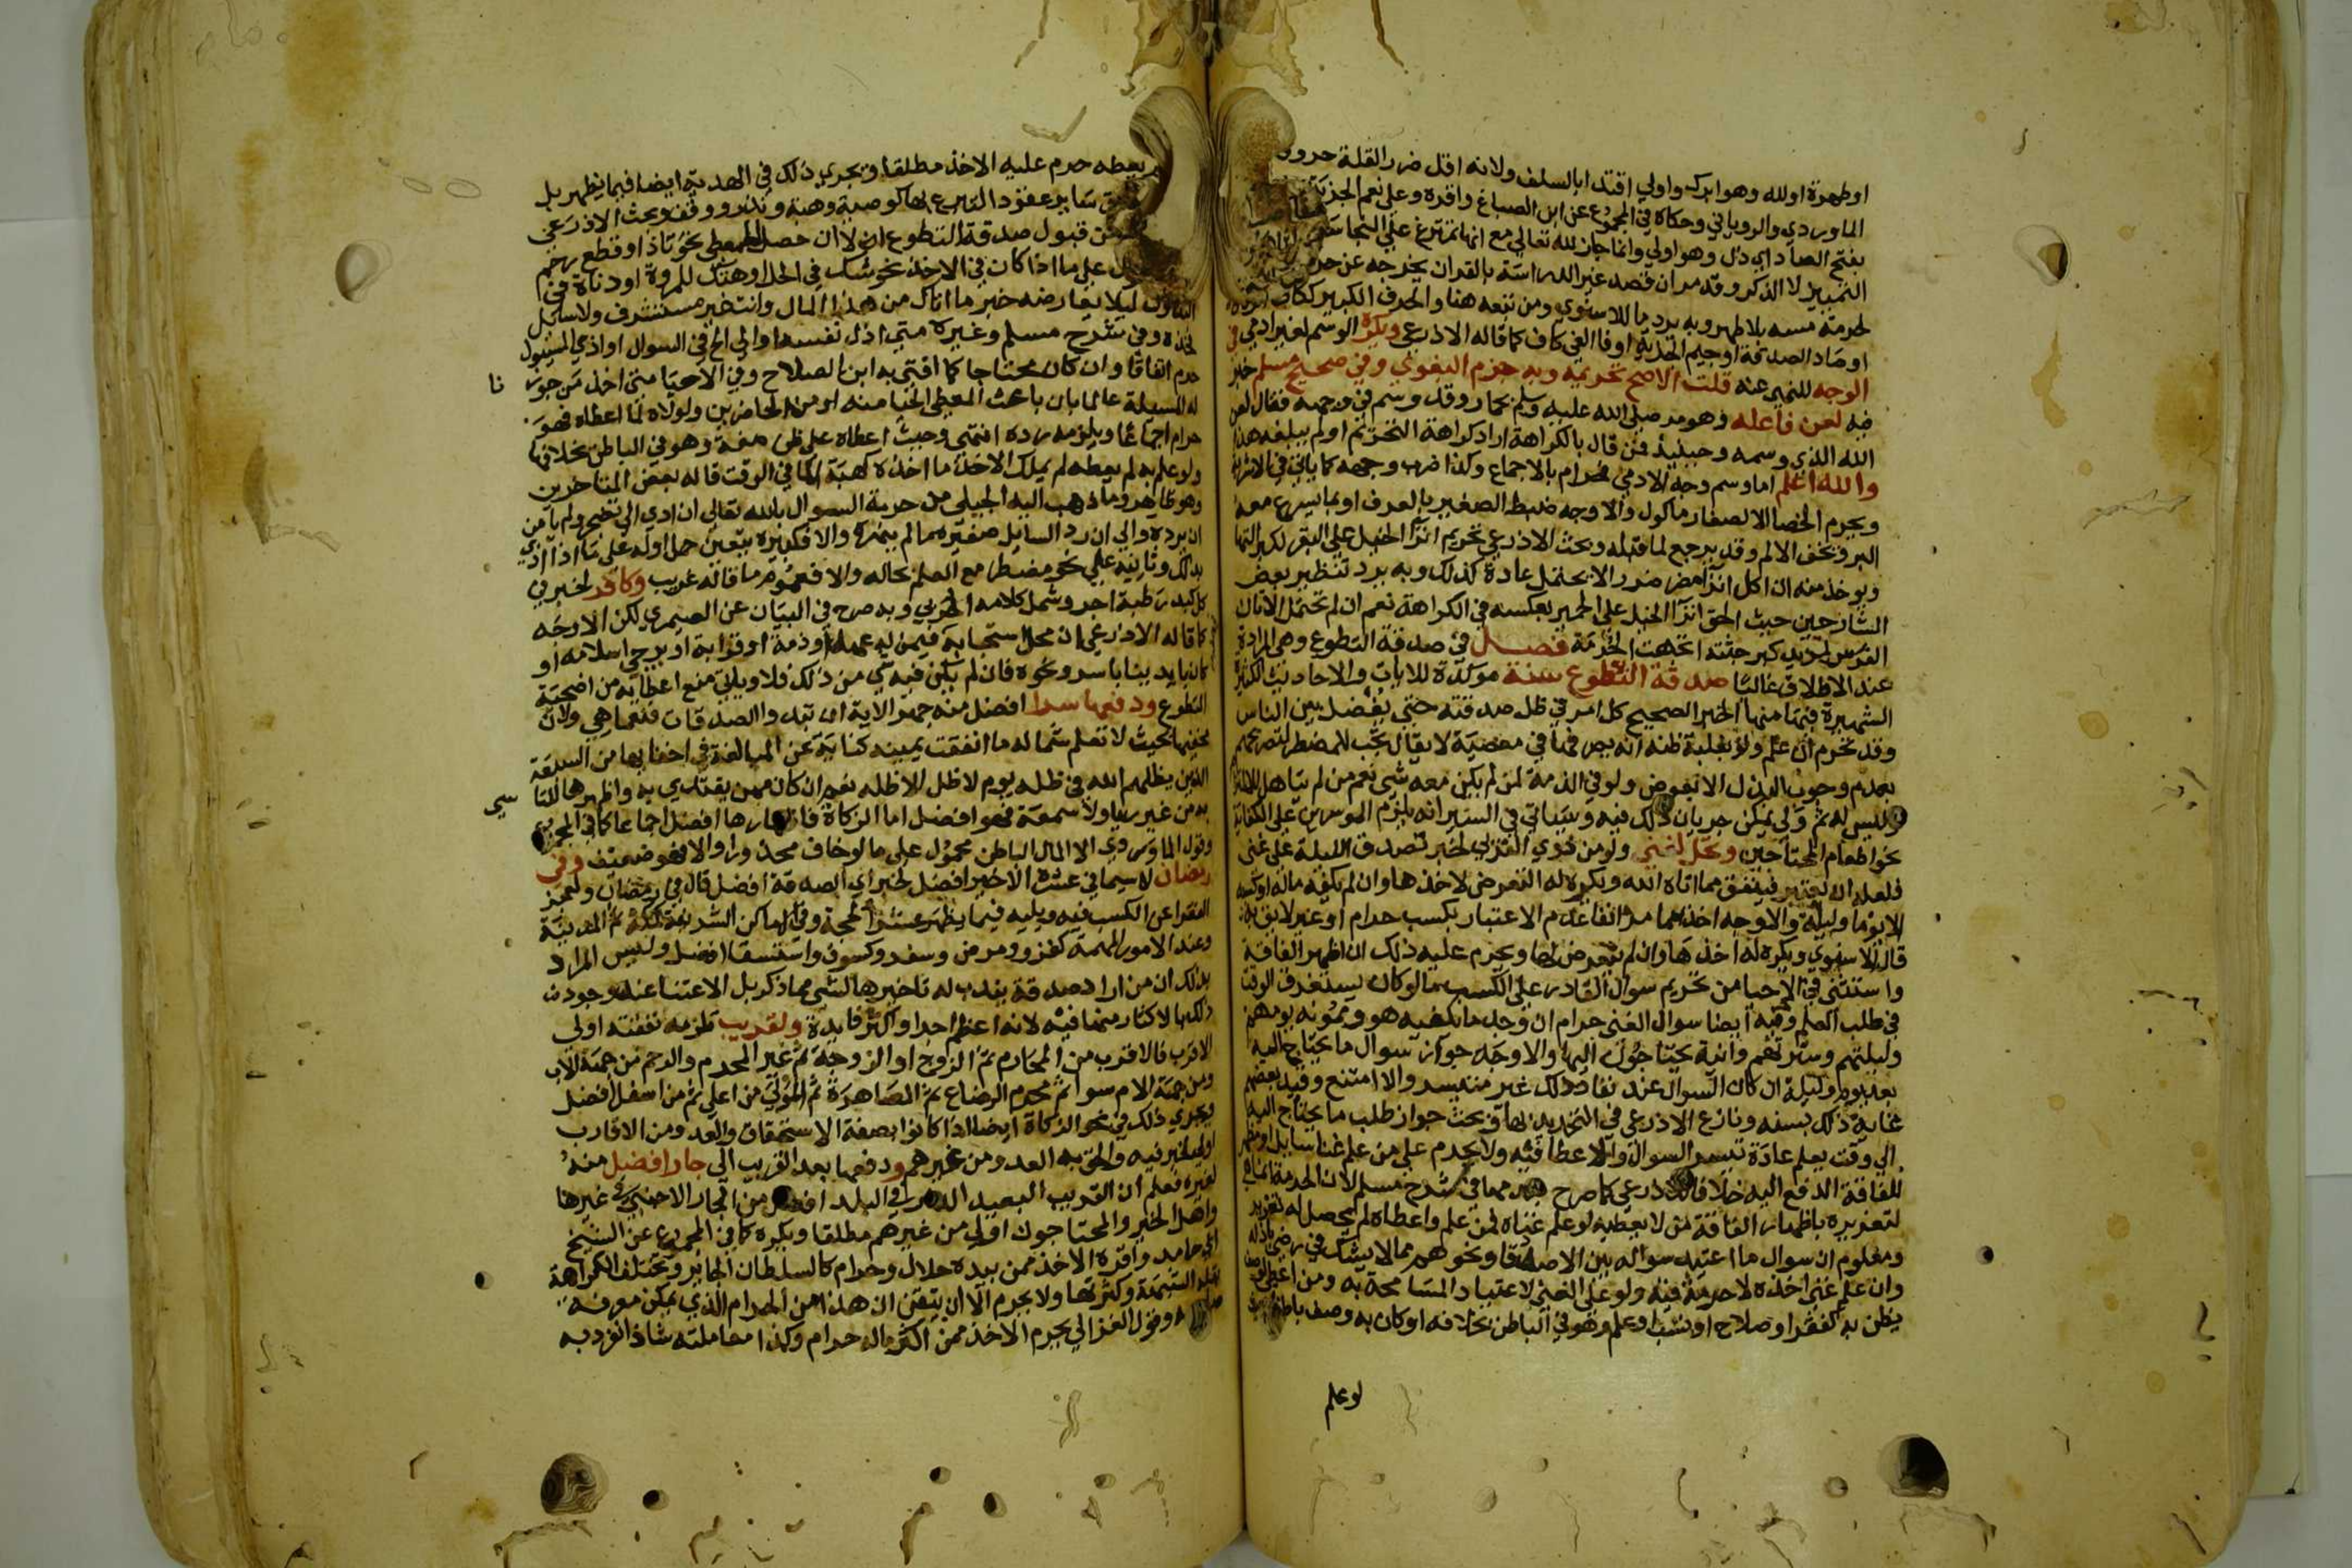 اوطهرة اولله وهو ابرك واولي اقتدا بالسلف ولانه اقل ضررا لقلة حروف
الماوردي والروياني وحكاه في المجموع عن ابن الصباغ واقره وعلى نعم الجزية
بفتح الصاد اي ذل وهو اولي وانما جاز لله تعالي مع انها تتمرغ علي النجاسة
التمييز لا الذكر وقد مر ان قصد غير الدراسة بالقران يخرجه عن
لحرمة مسه بلا طهر وبه يرد ما للاسنوي ومن تبعه هنا والحرف الكبير ككاف
اوصاد الصدقة اوجيم الجزية اوفا الفي كاف كما قاله الاذرعي ويكره الوسم لغير ادمي في
الوجه للنهي عنه قلت الاصح تحريمه وبه جزم البغوي وفي صحيح مسلم خبر
فيه لعن فاعله وهو مر صلى الله عليه وسلم بحمار وقد وسم في وجهه فقال لعن
الله الذي وسمه وحينيذ فمن قال بالكراهة اراد كراهة التحريم او لم يبلغه هذا
والله اعلم اما وسم وجه الادمي فحرام بالاجماع وكذا ضرب وجهه كما ياتي في الاشربة
ويحرم الخصا الا لصغار ماكول والاوجه ضبط الصغير بالعرف او بما يسرع معه
البرو ويخف الالم وقد يرجع لما قبله وبحث الاذرعي تحريم انزا الخيل على البقر لكبر التها
ويوخذ منه ان كل انزا مضر ضررا لا يحتمل عادة كذلك وبه يرد تنظير بعض
الشارحين حيث الحق انزا الخيل على الحمير بعكسه في الكراهة نعم ان لم تحتمل الاتان
الفرس لمزيد كبر جثته اتجهت الحرمة فصل في صدقة التطوع وهي المرادة
عند الاطلاق غالبا صدقة التطوع سنة موكدة للايات والاحاديث الكثيرة
الشهيرة فيها منها الخبر الصحيح كل امر في ظل صدقته حتى يفصل بين الناس
وقد تحرم ان علم ولو بغلبة ظنه انه يصرفها في معصية لا يقال تجب للمضطر لتصريحهم
بعدم وجوب البذل الا بعوض ولو في الذمة لمن لم يكن معه شي نعم من لم يتاهل للالتزام
وليس له ثم ولي يمكن جريان ذلك فيه وسياتي في السير انه يلزم الموسرين على الكفاية
نحو اطعام المحتاجين وتحل لغني ولو من ذوي القربي لخبر تصدق الليلة على غني
فلعله ان يعتبر فينفق مما اتاه الله ويكره له التعرض لاخذها وان لم يكفه ماله اوكسبه
الا يوما وليلة والاوجه اخذ مما مر انفا عدم الاعتبار بكسب حرام او غير لايق به
قال الاسنوي ويكره له اخذها وان لم يتعرض لها ويحرم عليه ذلك ان اظهر الفاقة
واستثنى في الاحيا من تحريم سوال القادر على الكسب ما لو كان يستغرق الوقت
في طلب العلم وفيه ايضا سوال الغني حرام ان وجد ما يكفيه هو وممونه يومهم
وليلتهم وسترتهم وانية يحتاجون اليها والاوجه جواز سوال ما يحتاج اليه
بعد يوم وليلة ان كان السوال عند نفاد ذلك غير متيسر والا امتنع وقيد بعضهم
غاية ذلك بسنة ونازع الاذرعي في التحديد بها وبحث جواز طلب ما يحتاج اليه
الي وقت يعلم عادة تيسر السوال والاعطا فيه ولا يحرم على من علم غنا سايل او مظهر
للفاقة الدفع اليه خلافا للاذرعي كما صرح به مما في شرح مسلم لان الحرمة انما هي
لتغريره باظهار الفاقة من لا يعطيه لو علم غناه فمن علم واعطاه لم يحصل له تغرير
ومعلوم ان سوال ما اعتيد سواله بين الاصدقا ونحوهم مما لا يشك في رضي باذله
وان علم غني اخذه لا حرمة فيه ولو على الغني لاعتياد المسامحة به ومن اعطي لوصف
يظن به كفقر او صلاح او نسب او علم وهو في الباطن بخلافه او كان به وصف باطن
لو علم
يعطه حرم عليه الاخذ مطلقا ويجري ذلك في الهدية ايضا فيما يظهر بل
ساير عقود التبرع لها كوصية وهبة ونذر ووقف وبحث الاذرعي
قبول صدقة التطوع اي لا ان حصل للمعطي نحو تاذ او قطع رحم
علي ما اذا كان في الاخذ نحو شك في الحل او هتك للمروة او دناة في
التناول ليلا يعارضه خبر ما اتاك من هذا المال وانت غير مستشرف ولا سايل
فخذه وفي شرح مسلم وغيره متي اذل نفسه او الح في السوال او اذي المسيول
حرم اتفاقا وان كان محتاجا كما افتي به ابن الصلاح وفي الاحيا متي اخذ من جوزنا
له المسيلة عالما بان باعث المعطي الحيا منه او من الحاضرين ولولاه لما اعطاه فهو
حرام اجماعا ويلزمه رده انتهي وحيث اعطاه على ظن صفة وهو في الباطن بخلافها
ولو علم به لم يعطه لم يملك الاخذ ما اخذه كهبة الما في الوقت قاله بعض المتاخرين
وهو ظاهر وما ذهب اليه الحليمي من حرمة السوال بالله تعالي ان ادي الي تضجر ولم يامن
ان يرده والي ان رد السايل صغيرة ما لم ينهره والا فكبيرة يتعين حمل اوله على ما اذا اذي
بذلك وثانيه على نحو مضطر مع العلم بحاله والا فعموم ما قاله غريب وكافر لخبر في
كل كبد رطبة اجر وشمل كلامه الحربي وبه صرح في البيان عن الصيمري لكن الاوجه
كما قاله الاذرعي ان محل استحبابه فيمن له عهد او ذمة او قرابة او يرجي اسلامه او
كان بايدينا باسر ونحوه فان لم يكن فيه شي من ذلك فلا وياتي منع اعطايه من اضحية
التطوع ودفعها سرا افضل منه جهرا لاية ان تبدوا الصدقات فنعما هي ولان
مخفيها بحيث لا تعلم شماله ما انفقت يمينه كناية عن المبالغة في اخفايها من السبعة
الذين يظلهم الله في ظله يوم لا ظل الا ظله نعم ان كان ممن يقتدي به واظهرها للتاسي
به من غير ريا ولا سمعة فهو افضل اما الزكاة فاظهارها افضل اجماعا كما في المجموع
وقول الماوردي الا المال الباطن محمول على ما لو خاف محذورا والا فهو ضعيف وفي
رمضان لاسيما في عشره الاخير افضل لخبر اي الصدقة افضل قال في رمضان ولعجز
الفقرا عن الكسب فيه ويليه فيما يظهر عشر الحجة وفي الاماكن الشريفة كمكة ثم المدينة
وعند الامور المهمة كغزو ومرض وسفر وكسوف واستسقا افضل وليس المراد
بذلك ان من اراد صدقة يندب له تاخيرها لشي مما ذكر بل الاعتنا عند وجود
ذلك بالاكثار منها فيه لانه اعظم اجرا واكثر فايدة ولقريب تلزمه نفقته اولي
الاقرب فالاقرب من المحارم ثم الزوج او الزوجة ثم غير المحرم والرحم من جهة الاب
ومن جهة الام سوا ثم محرم الرضاع ثم المصاهرة ثم المولي من اعلى ثم من اسفل افضل
ويجري ذلك في نحو الزكاة ايضا اذا كانوا بصفة الاستحقاق والعدو من الاقارب
اولي لخبر فيه والحق به العدو من غيرهم ودفعها بعد القريب الي جار افضل منه
لغيره فعلم ان القريب البعيد الدار في البلد افضل من الجار الاجنبي وفي غيرها
واهل الخير والمحتاجون اولي من غيرهم مطلقا ويكره كما في المجموع عن الشيخ
ابي حامد واقره الاخذ ممن بيده حلال وحرام كالسلطان الجاير وتختلف الكراهة
بقلة الشبهة وكثرتها ولا يحرم الا ان يتيقن ان هذا من الحرام الذي يمكن معرفة
وقول الغزالي يحرم الاخذ ممن اكثر ماله حرام وكذا معاملته شاذ انفرد به